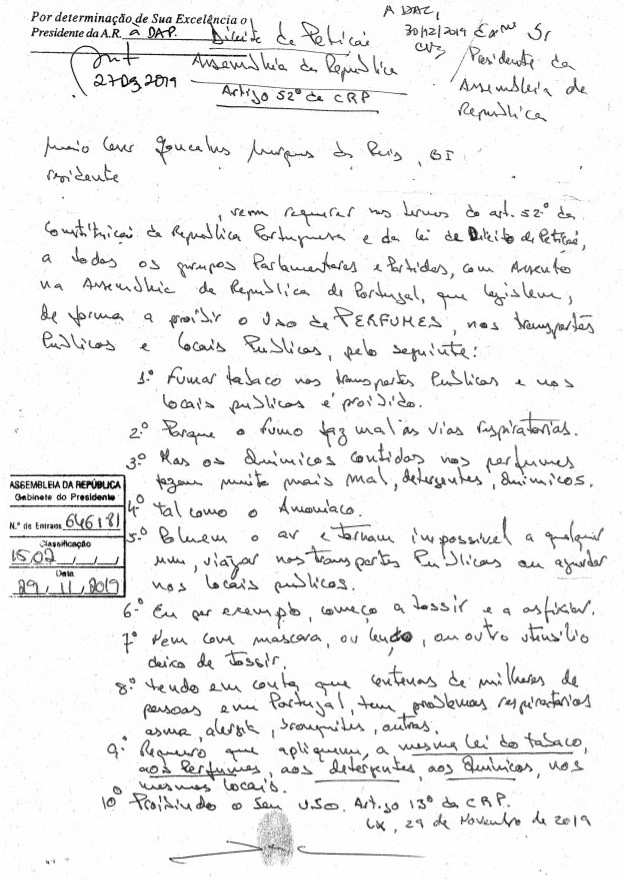 Por determinação de Sua Excelência o
Presidente da A.R. a DAP.
27 Dez 2019
Direito de Petição
Assembleia da República
Artigo 52º da CRP
A DAC,
30/12/2019
Exmo Sr
Presidente da
Assembleia de
República
Gonçalves Marques dos Reis, BI
residente
, vem requerer nos termos do art. 52º da
Constituição da República Portuguesa e da lei de Direito de Petição,
a todos os grupos Parlamentares e Partidos, com Assento
na Assembleia da República de Portugal, que legislem,
de forma a proibir o uso de PERFUMES, nos transportes
Públicos e locais Publicos, pelo seguinte:
1.º Fumar tabaco nos transportes Publicos e nos
locais publicos é proibido.
2.º Porque o fumo faz mal às vias respiratorias.
3.º Mas os Quimicos contidos nos perfumes
fazem muito mais mal, detergentes, Quimicos.
4.º tal como o Amoníaco.
5.º Poluem o ar e tornam impossivel a qualquer
um, viajar nos transportes Publicos ou aguardar
nos locais publicos.
6.º Eu por exemplo, começo a tossir e a asfixiar.
7º Nem com mascara, ou lenço, ou outro utensilio
deixo de tossir.
8.º tendo em conta, que centenas de milhares de
pessoas em Portugal, tem problemas respiratorios
asma, alergia, bronquites, outras.
9.º Requeiro que apliquem, a mesma lei do tabaco,
aos Perfumes, aos detergentes, aos Quimicos, nos
mesmos locais.
10º Proibindo o seu uso. Artigo 13º da CRP.
Lx, 29 de Novembro de 2019
ASSEMBLEIA DA REPÚBLICA
Gabinete do Presidente
N.º de Entrada 646181
Classificação
15.02 / / /
Data
29 / 11 / 2019